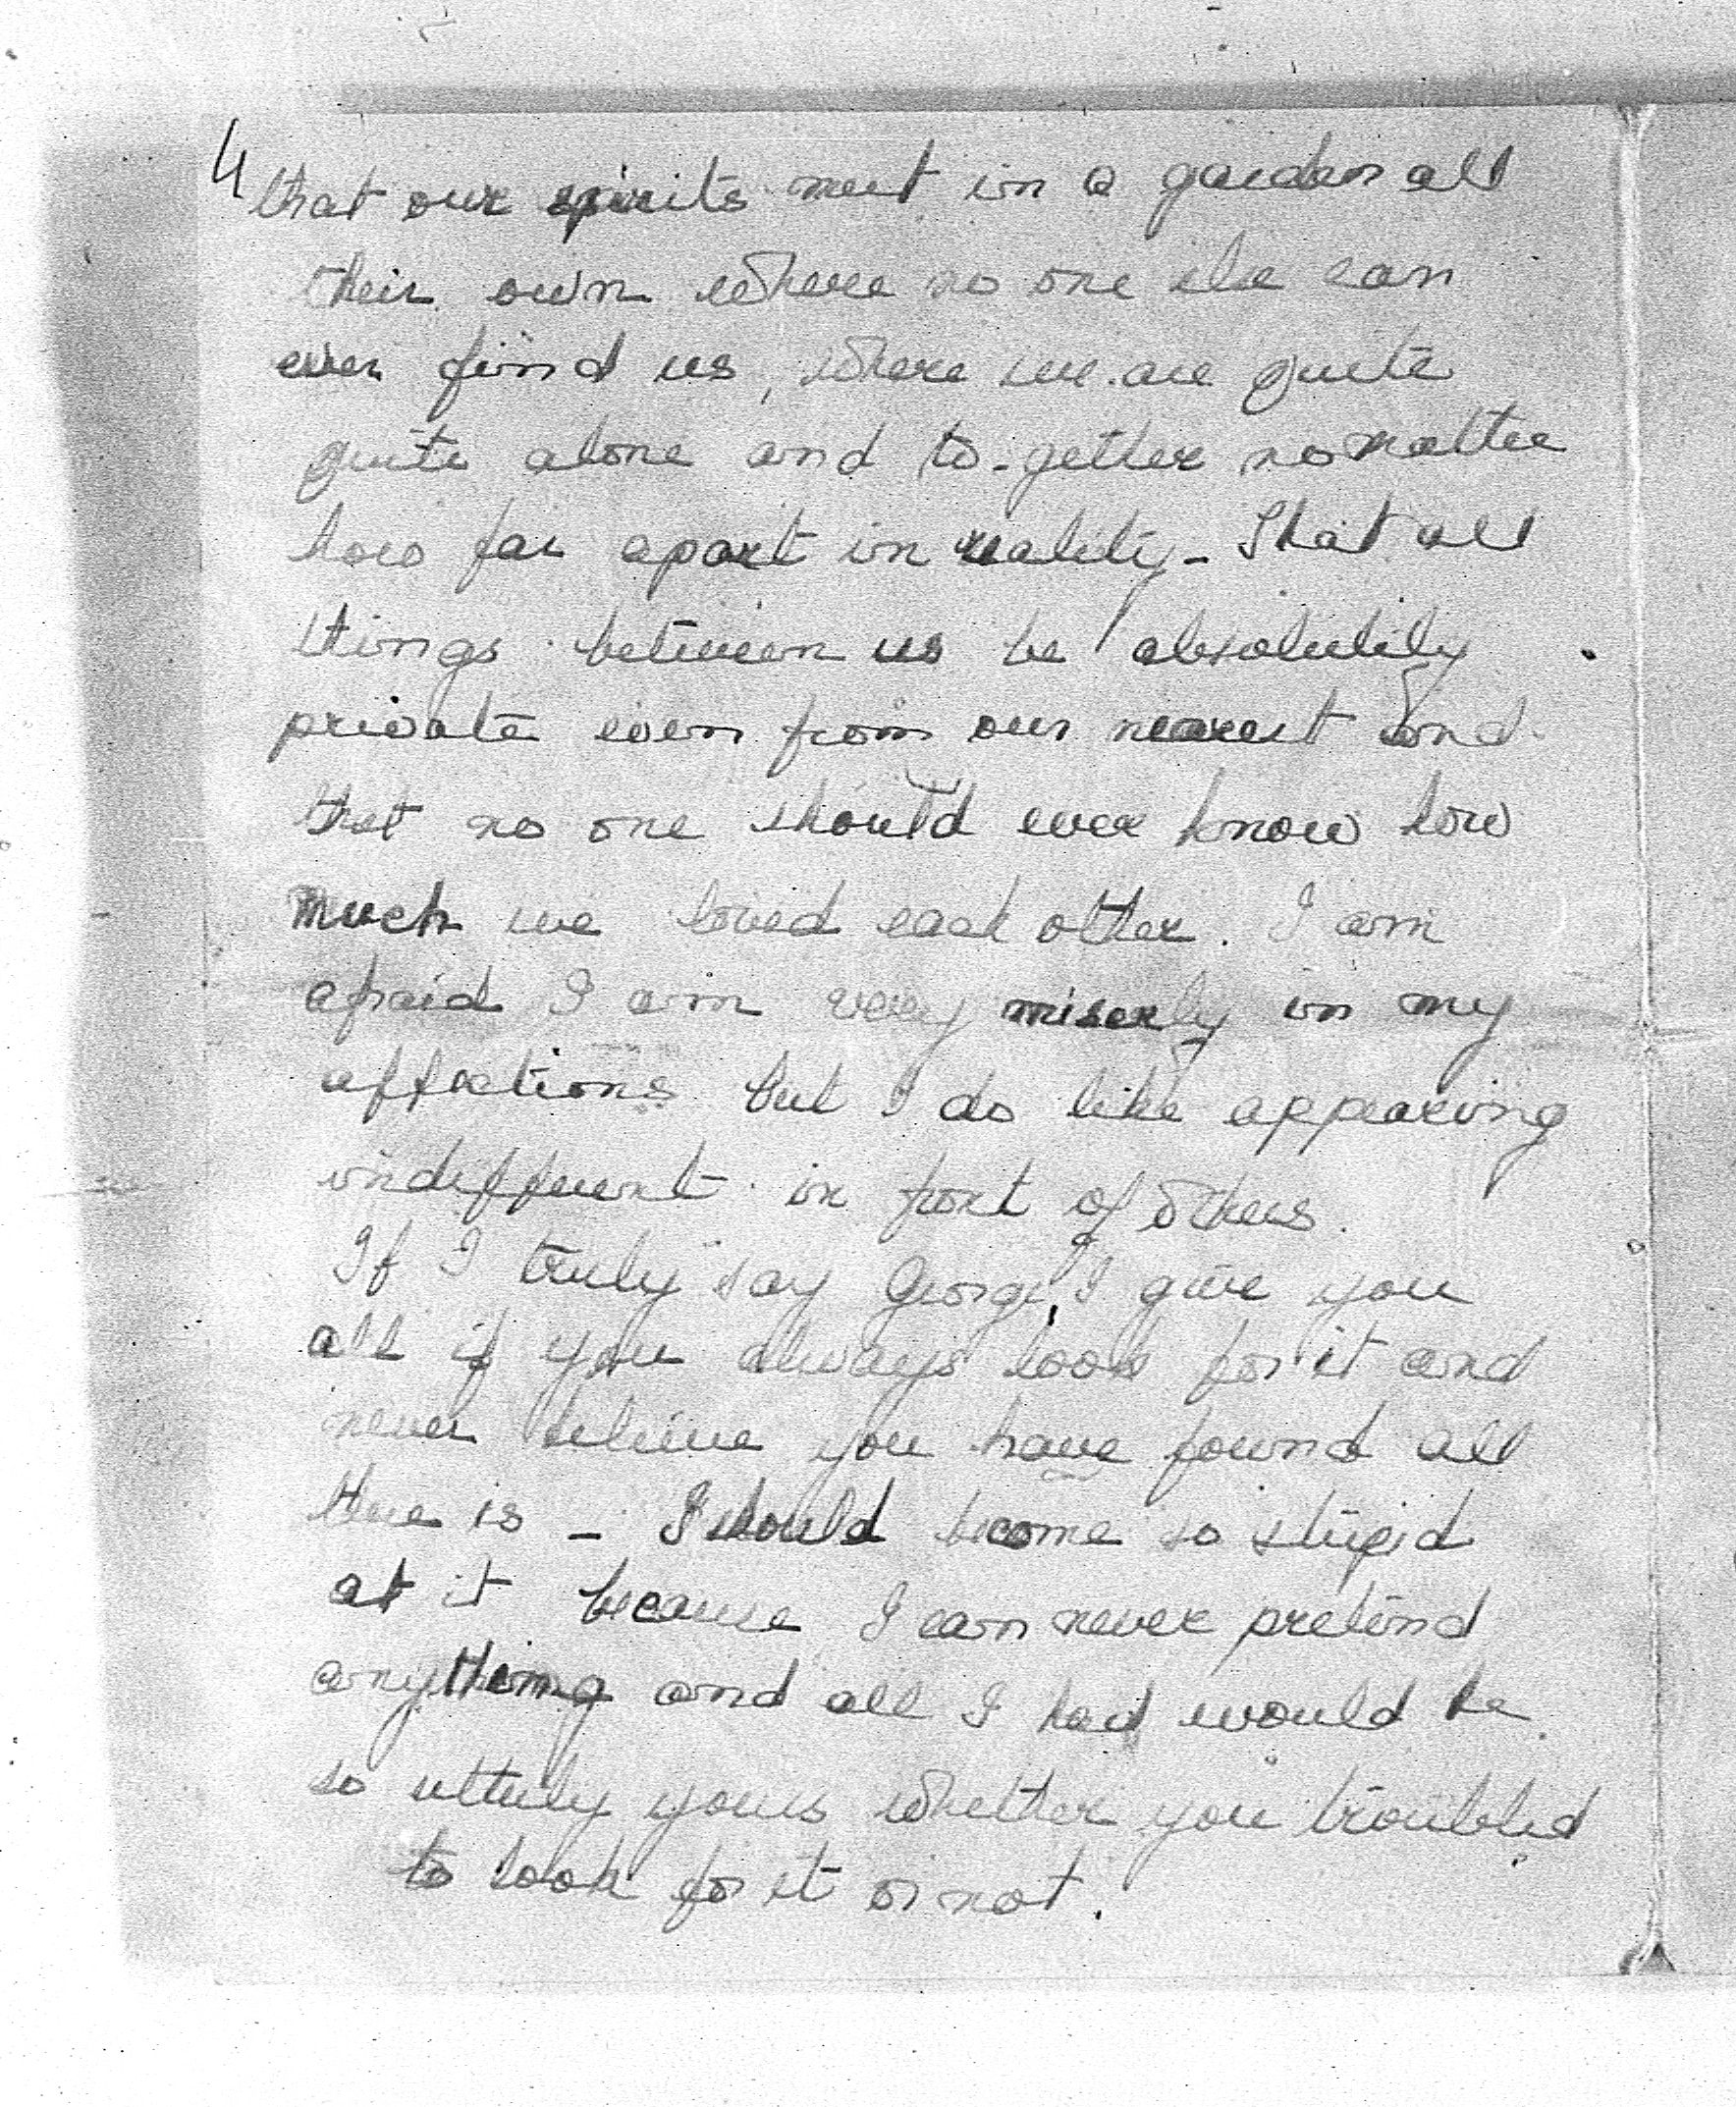 4
that our spirits meet in a garden all
their own where no one else can
ever find us, where we are quite
quite alone and to-gether no matter
how far apart in reality - That all
things between us be absolutely
private even from our nearest and
that no one should ever know how
much we loved each other. I am
afraid I am very miserly in my
affections but I do like appearing
indifferent in front of others.
If I truly say George, I give you
all if you always look for it and
never believe you have found all
there is - I should become so stupid
at it because I can never pretend
anything and all I had would be
so utterly yours whether you troubled
to look for it or not.